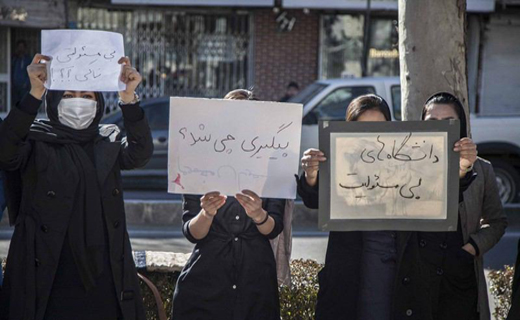 بی مسئولیتی
تا کی؟!!
پیگیری چی شد؟
دانشگاه های
بی مسئولیت